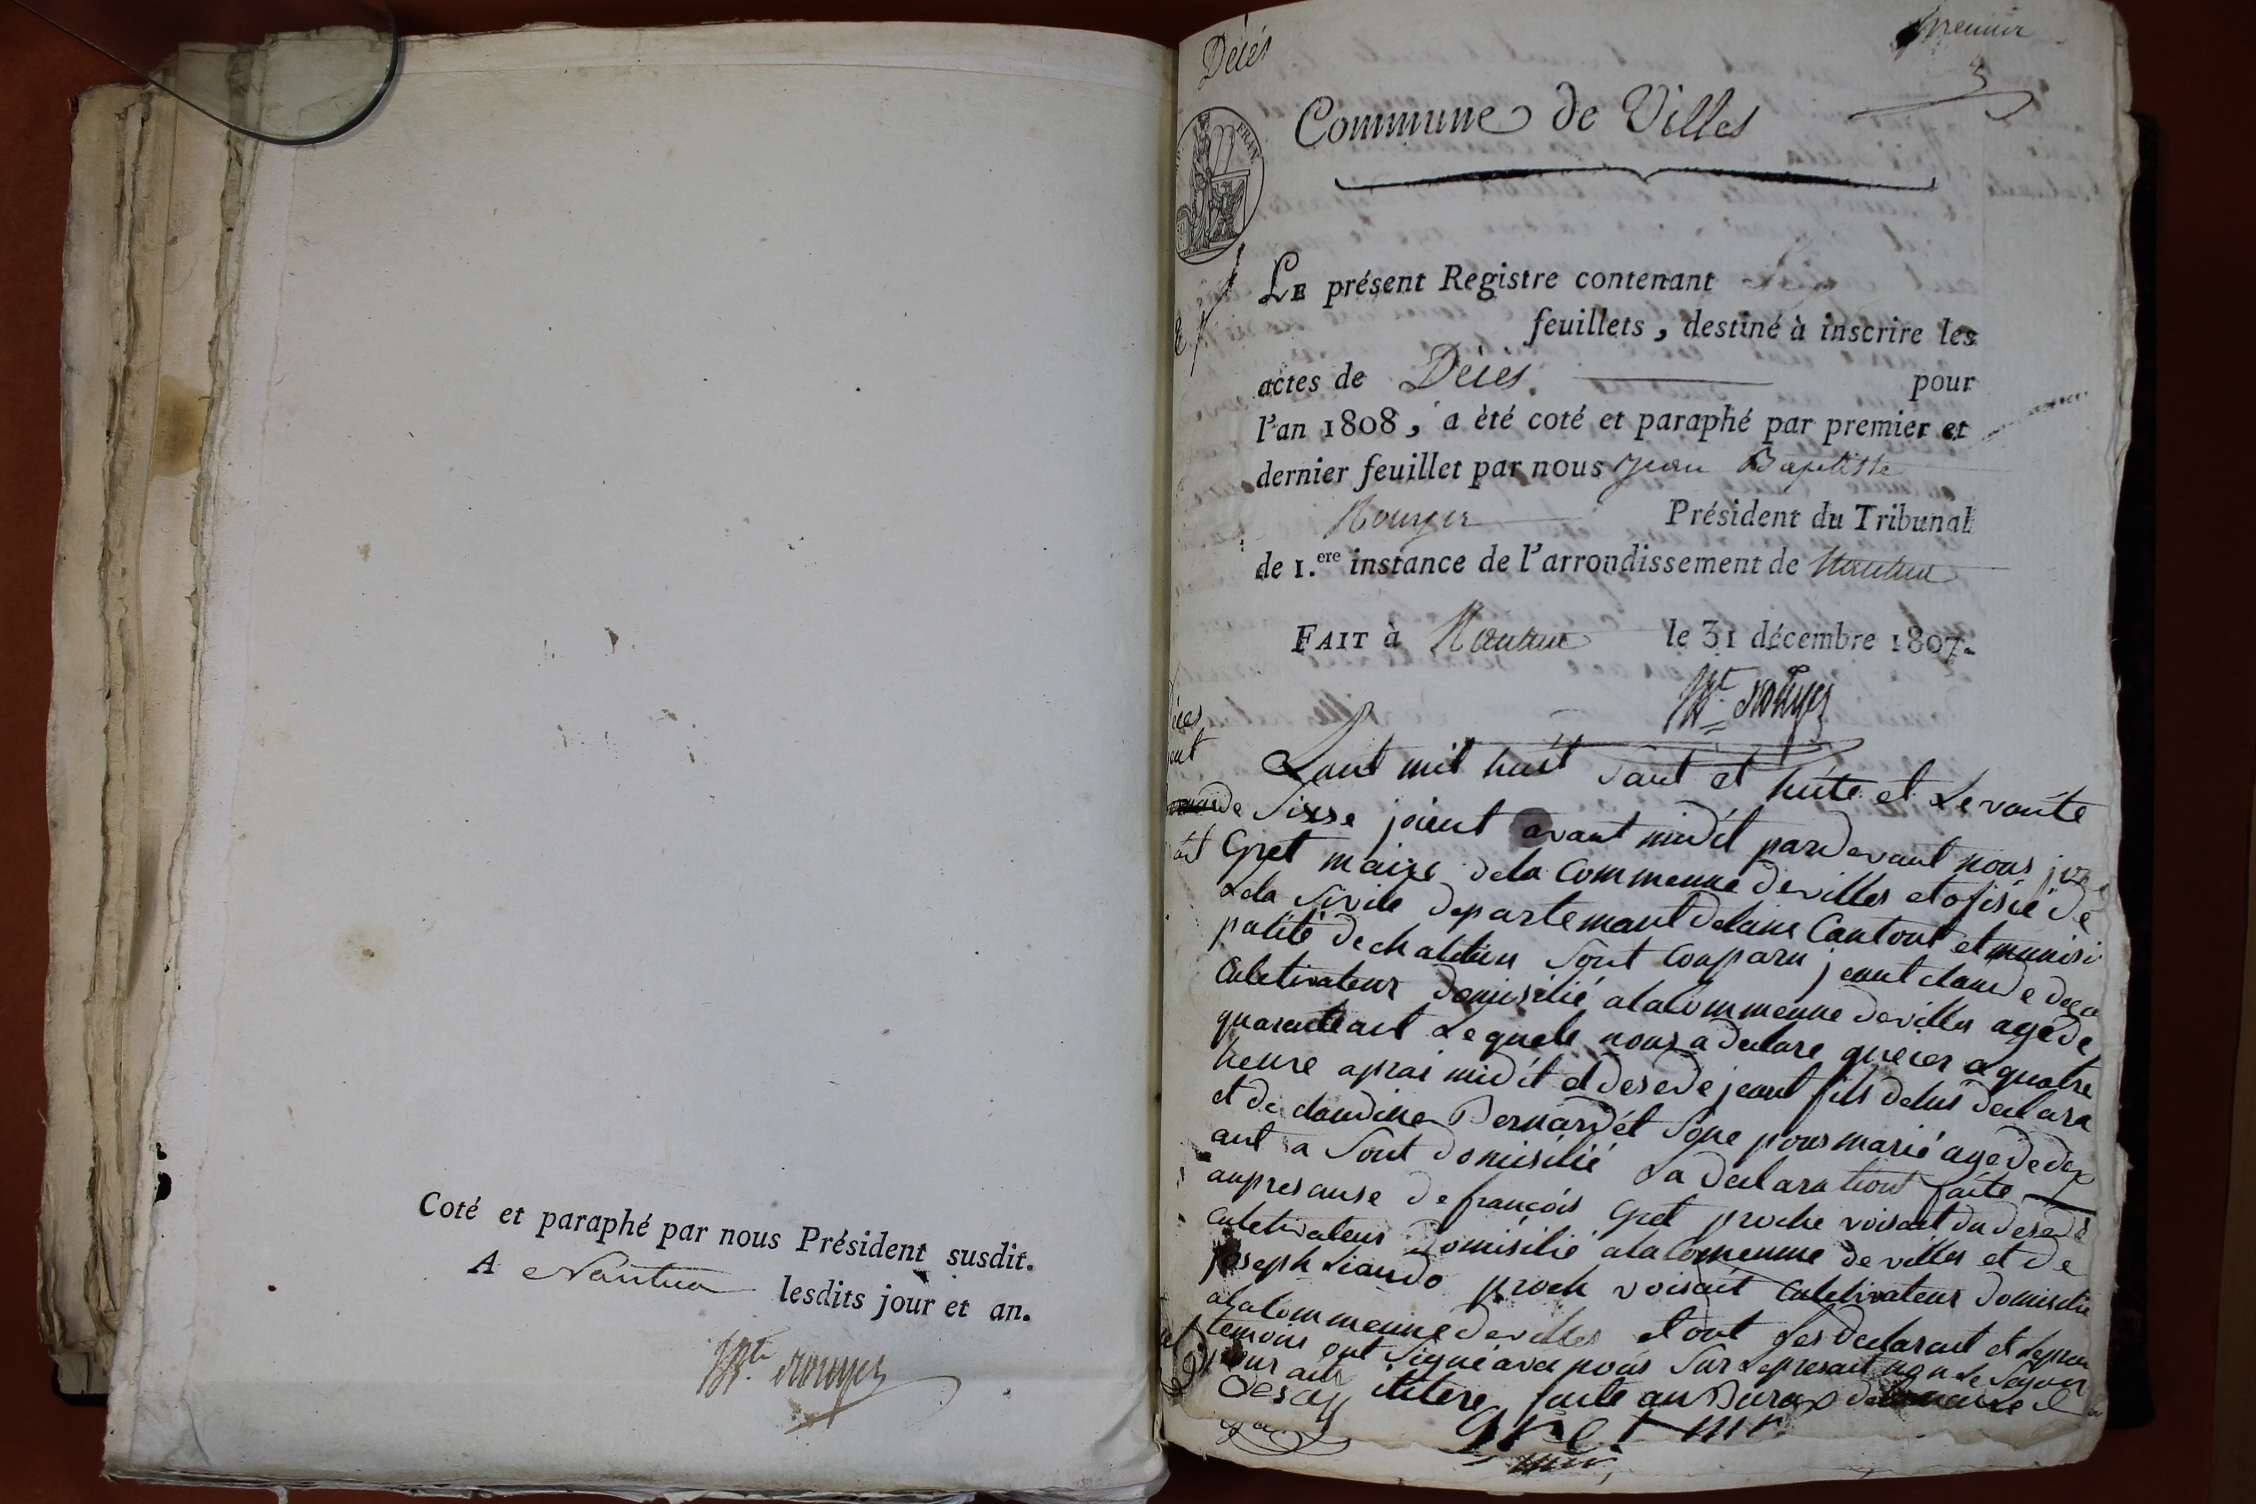 Coté et paraphé par nous Président susdit.
A Nantua lesdits jour et an.
Bte. rouyer
Décés
premier
Commune de Villes
FRAN
LE présent Registre contenant
feuillets, destiné à inscrire les
actes de Décés. pour
l'an 1808, a été coté et paraphé par premier et
dernier feuillet par nous Jean Baptiste
Rouyer Président du Tribunal
de 1.ere instance de l'arrondissement de Nantua
FAIT à Nantua le 31 décembre 1807.
Bt. rouyer
Lant mil huit sant et huite et Le vante
Sixse jeint avant midit pardevant nous joze
Gret maire dela Commenne devilles et ofisié de
Leta Sivile departemant delans Cantont et munisi
palité dechatilion Sont Conparu jeant claude
Culetivateur domisilié alaCommenne devilles agé de
quarante ant Lequele nous a declare que ier a quatre
heure aprai midit et desede jeant fils delus declara
et de claudine Bernardét Sone pour marié agé de
ant a Sont domisilié La declarationt faite
anpresanse de francois Gret proche voisint du desede
Culetivateur domisilié alaComenne de villes et de
joseph Liando proch voisint Culetivateur domisilie
alaCommenne devilles et ont Les declarant et
temoins ont Signé avec nous Sur Lepresant non Le Savoir
faite au Burax
gret mr